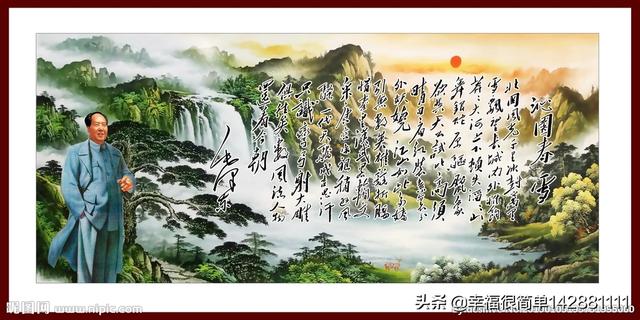 沁园春 雪
北国风光千里冰封万里
雪飘望长城内外惟余
莽莽大河上下顿失滔滔山
舞银蛇原驰蜡象
欲与天公试比高须
晴日看红装素裹
分外妖娆江山如此多娇
引无数英雄竞折腰
惜秦皇汉武略输文
采唐宗宋祖稍逊风
骚一代天骄成吉思汗
只识弯弓射大雕
俱往矣数风流人物
还看今朝
毛泽东
昵图网 www.nipic.com
头条 @幸福很简单142881111